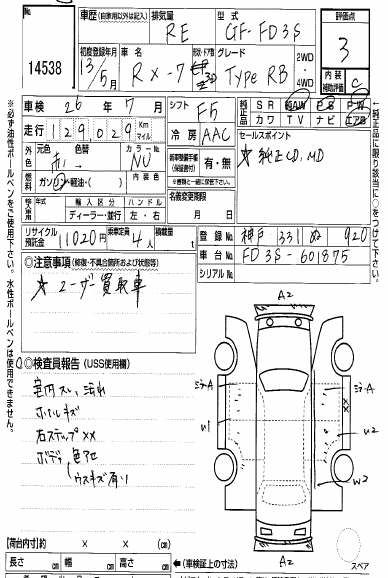 車歴 (自家用以外は記入) 排気量 型式 評価点
14538 RE GF-FD3S 3
初度登録年月 車名 ドア グレード 2WD・4WD
13/5月 RX-7 Type RB 内装補助評価 C
車検 26年7月 シフト F5 純正品 SR AW PS PW
走行 129029 Km マイル 冷房 AAC カワ TV ナビ エアB
元色 色替 カラーNo. セールスポイント
赤 NU 新車整備手帳(保証書付) 有・無 ☆純正CD,MD
ガソリン・軽油・( ) 内装色 ※書類と一緒に提出です。
輸入区分 ハンドル 名義変更期限
ディーラー・並行 左・右 月 日
リサイクル預託金 11020円 乗車定員 4人 積載量 t 登録No. 神戸 331 ぬ 920
車台No. FD3S-601875
シリアルNo.
◎注意事項 (修復・不具合箇所および状態等)
☆ユーザー買取車
◎検査員報告 (USS使用欄)
室内スレ、汚れ
ホイルキズ
右ステップXX
ボディ色アセ
ウスキズ有り
A2
A
A
XX
U1
U2
W2
A2
スペア
【荷台内寸】 約 × × (cm)
長さ cm 幅 cm 高さ cm ◀(車検証上の寸法)
※必ず油性ボールペンをご使用下さい。水性ボールペンは使用できません。
↑純正品に限り該当に○をして下さい。